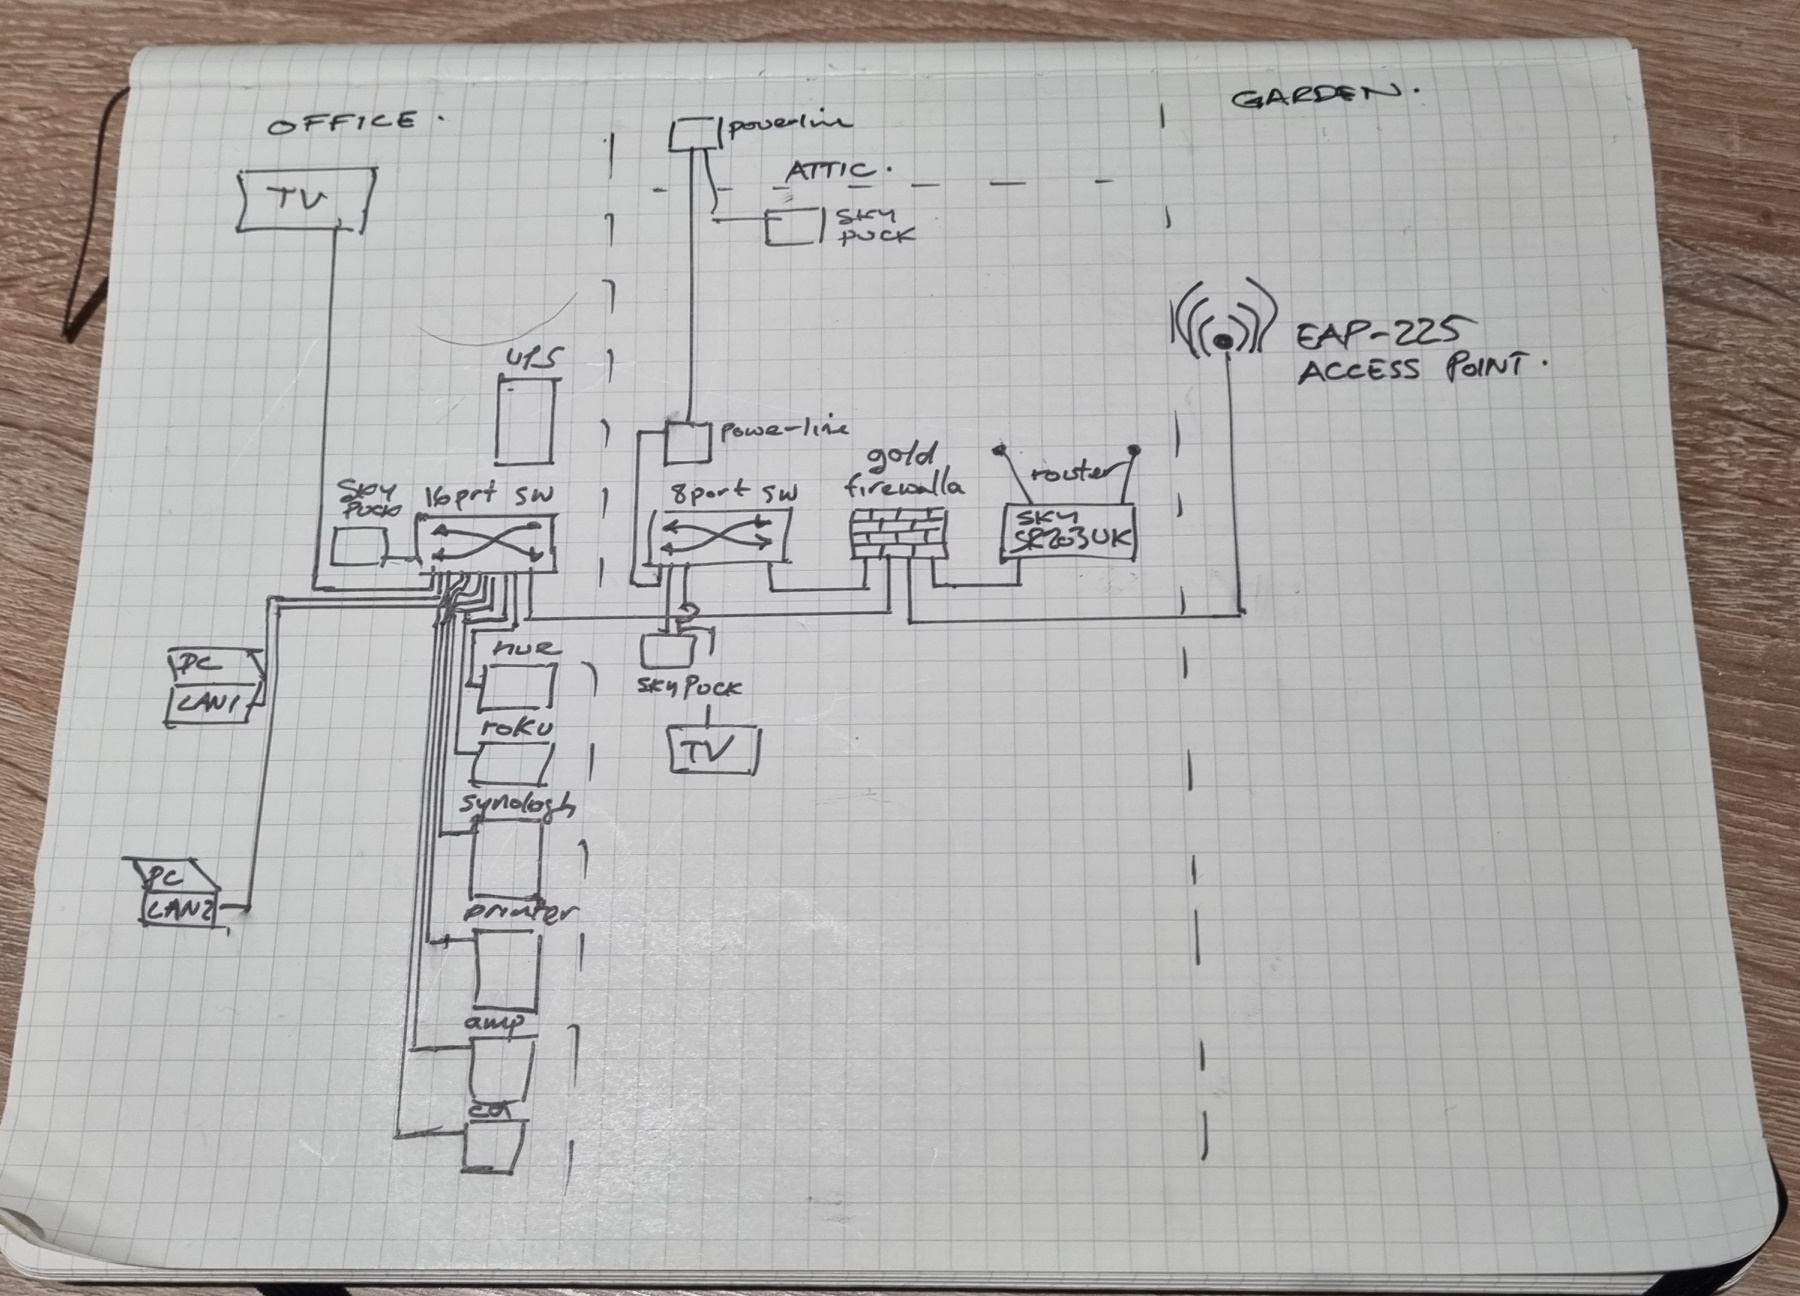 OFFICE.
GARDEN.
powerline
ATTIC.
TV
SKY
PUCK
EAP-225
ACCESS POINT.
UPS
power-line
gold
firewalla
router
SKY
PUCK
16prt SW
8port SW
SKY
SR203UK
PC
LAN1
HUE
SKY PUCK
roku
TV
synology
PC
LAN2
printer
amp
cd